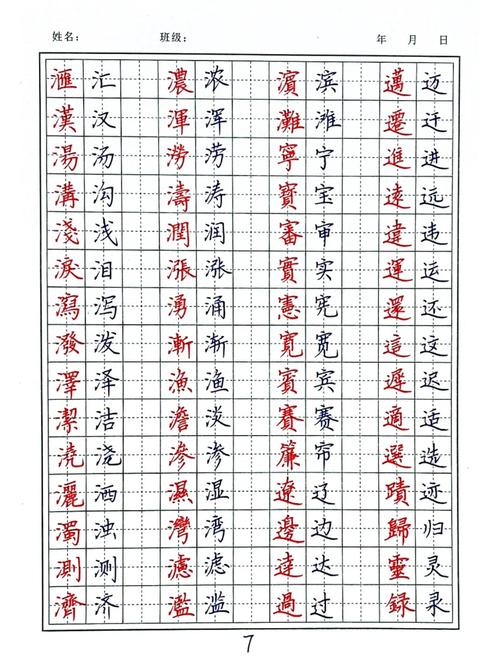 姓名： 班级： 年 月 日
匯 汇 濃 浓 濱 滨 邁 迈
漢 汉 渾 浑 灘 滩 遷 迁
湯 汤 澇 涝 寧 宁 進 进
溝 沟 濤 涛 寶 宝 遠 远
淺 浅 潤 润 審 审 違 违
淚 泪 漲 涨 實 实 運 运
瀉 泻 湧 涌 憲 宪 還 还
潑 泼 漸 渐 寬 宽 這 这
澤 泽 漁 渔 賓 宾 遲 迟
潔 洁 澹 淡 賽 赛 適 适
澆 浇 滲 渗 簾 帘 選 选
灑 洒 濕 湿 遼 辽 蹟 迹
濁 浊 灣 湾 邊 边 歸 归
測 测 濾 滤 達 达 靈 灵
濟 济 濫 滥 過 过 録 录
7